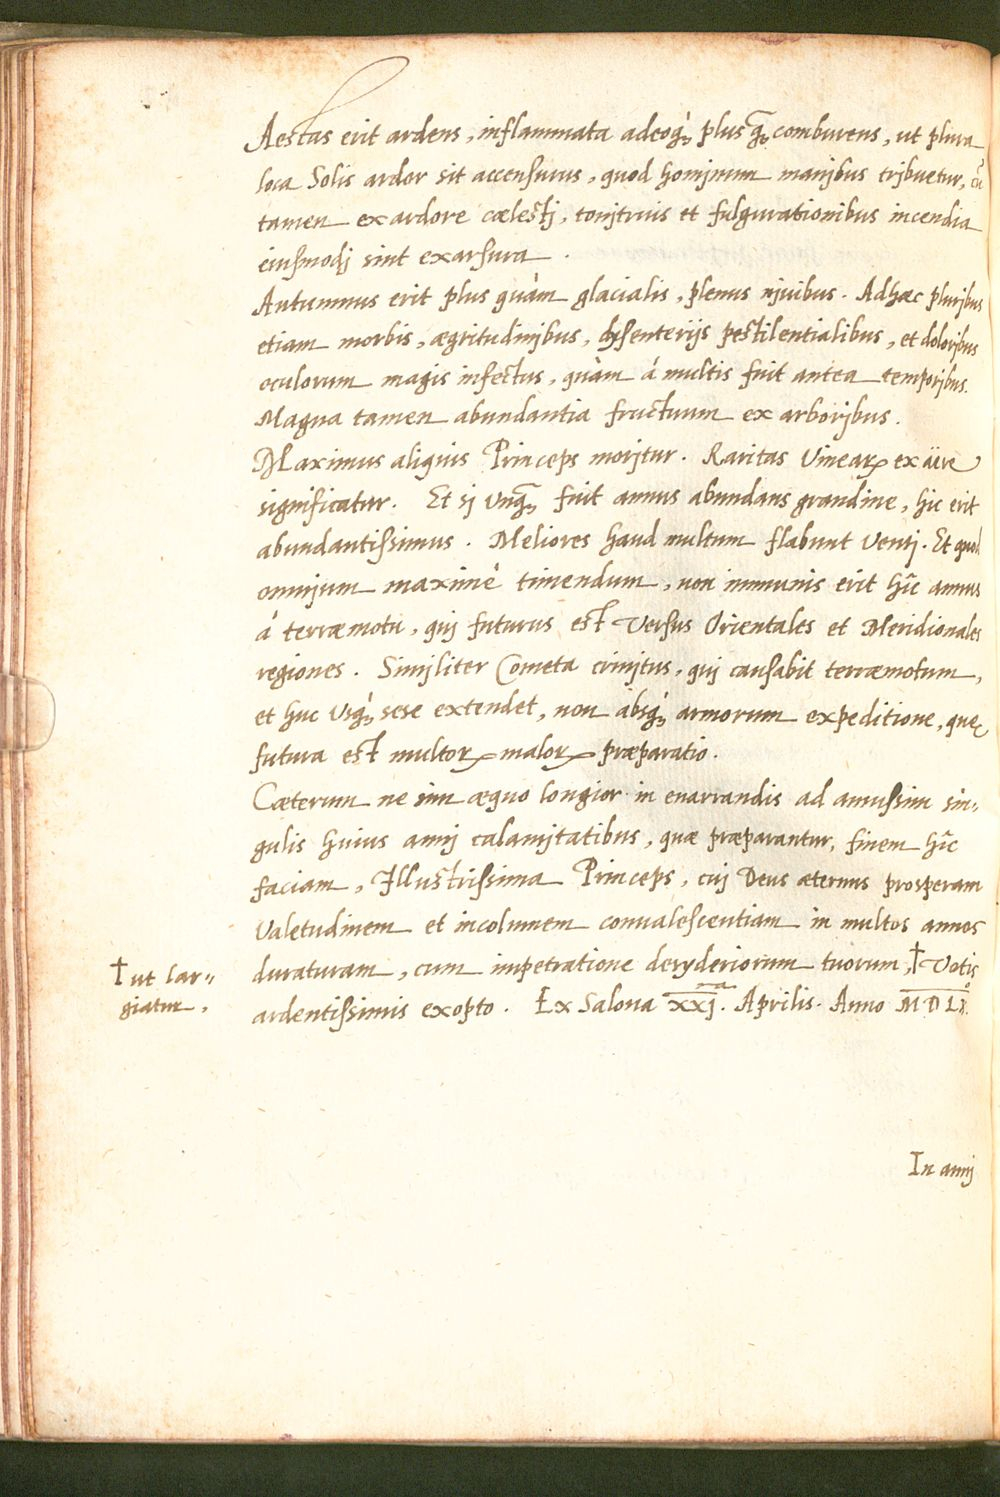 Aestas erit ardens, inflammata adeoq; plusq̃; comburens, ut plura
loca Solis ardor sit accensurus, quod hominum manibus tribuetur, cũ
tamen ex ardore cælestj, tonitruis et fulgurationibus incendia
eiusmodj sint exarsura.
Autumnus erit plus quàm glacialis, plenus njuibus. Ad hæc pluribus
etiam morbis, ægritudinibus, dysenterijs pestilentialibus, et doloribus
oculorum magis infectus, quàm á multis fuit antea temporibus.
Magna tamen abundantia fructuum ex arboribus.
Maximus aliquis Princeps morjtur. Raritas Vinearꝝ ex aëre
significatur. Et sj Vnq̃; fuit annus abundans grandine, hic erit
abundantissimus. Meliores haud multum flabunt Ventj. Et quod
omnjum maximè timendum, non immunis erit hĩc annus
á terræmotu, quj futurus est Versus Orientales et Meridionales
regiones. Simjliter Cometa crinjtus, quj causabit terræmotum,
et huc Vsq; sese extendet, non absq; armorum expeditione, quę
futura est multorꝝ malorꝝ præparatio.
Cæterum ne sim æquo longior in enarrandis ad amussim sin-
gulis huius annj calamjtatibus, quæ præparantur, finem hĩc
faciam, Illustrissima Princeps, cuj Deus æternus prosperam
Valetudinem et incolumem convalescentiam in multos annos
duraturam, cum impetratione deryderiorum tuorum, † Votis
† ut lar-
giatur,
ardentissimis exopto. Ex Salona xxj.ma Aprilis. Anno MDLXI.
In annj